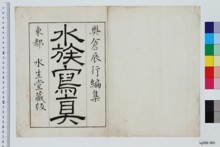 奥倉辰行編集
水族寫真
東都 水生堂蔵版